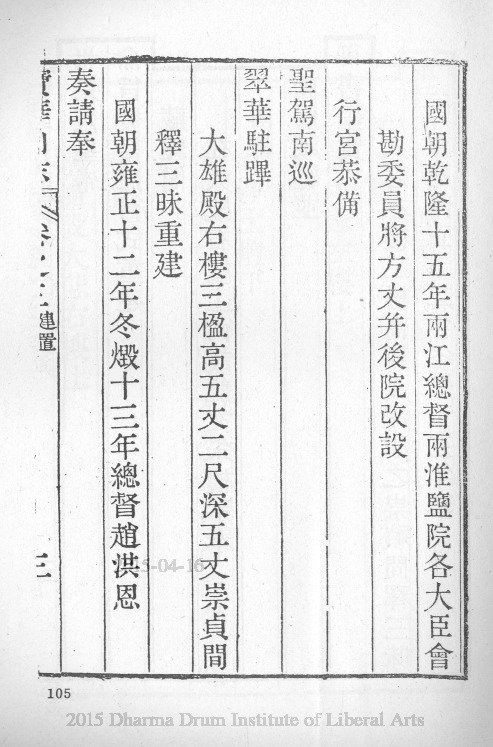 國朝乾隆十五年兩江總督兩淮鹽院各大臣會
勘委員將方丈幷後院改設
行宮恭備
聖駕南巡
翠華駐蹕
大雄殿右樓三楹高五丈二尺深五丈崇貞間
釋三昧重建
國朝雍正十二年冬燬十三年總督趙洪恩
奏請奉
寶華山志 卷之三 建置 三
105
2015 Dharma Drum Institute of Liberal Arts